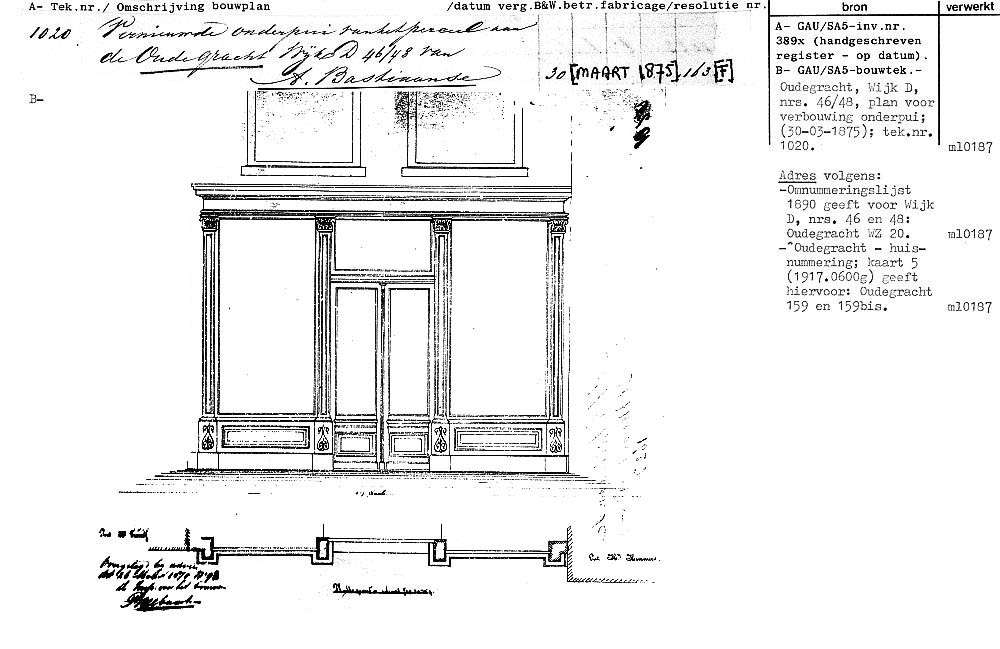 A- Tek.nr./ Omschrijving bouwplan /datum verg.B&W.betr.fabricage/resolutie nr. bron verwerkt
1020 Vernieuwde onderpui van het perceel aan
de Oude gracht Wijk D 46/48 van
A. Bastiaanse
30 [MAART 1875] 163 [F]
B-
A- GAU/SA5-inv.nr.
389x (handgeschreven
register - op datum).
B- GAU/SA5-bouwtek.-
Oudegracht, Wijk D,
nrs. 46/48, plan voor
verbouwing onderpui;
(30-03-1875); tek.nr.
1020. ml0187
Adres volgens:
-Omnummeringslijst
1890 geeft voor Wijk
D, nrs. 46 en 48:
Oudegracht WZ 20. ml0187
-^Oudegracht - huis-
nummering; kaart 5
(1917.0600g) geeft
hiervoor: Oudegracht
159 en 159bis. ml0187